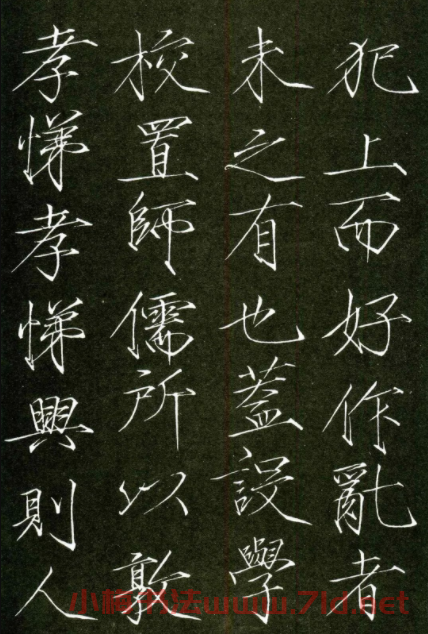 犯上而好作亂者
未之有也蓋設學
校置師儒所以敦
孝悌孝悌興則人
小楷书法www.7ld.net